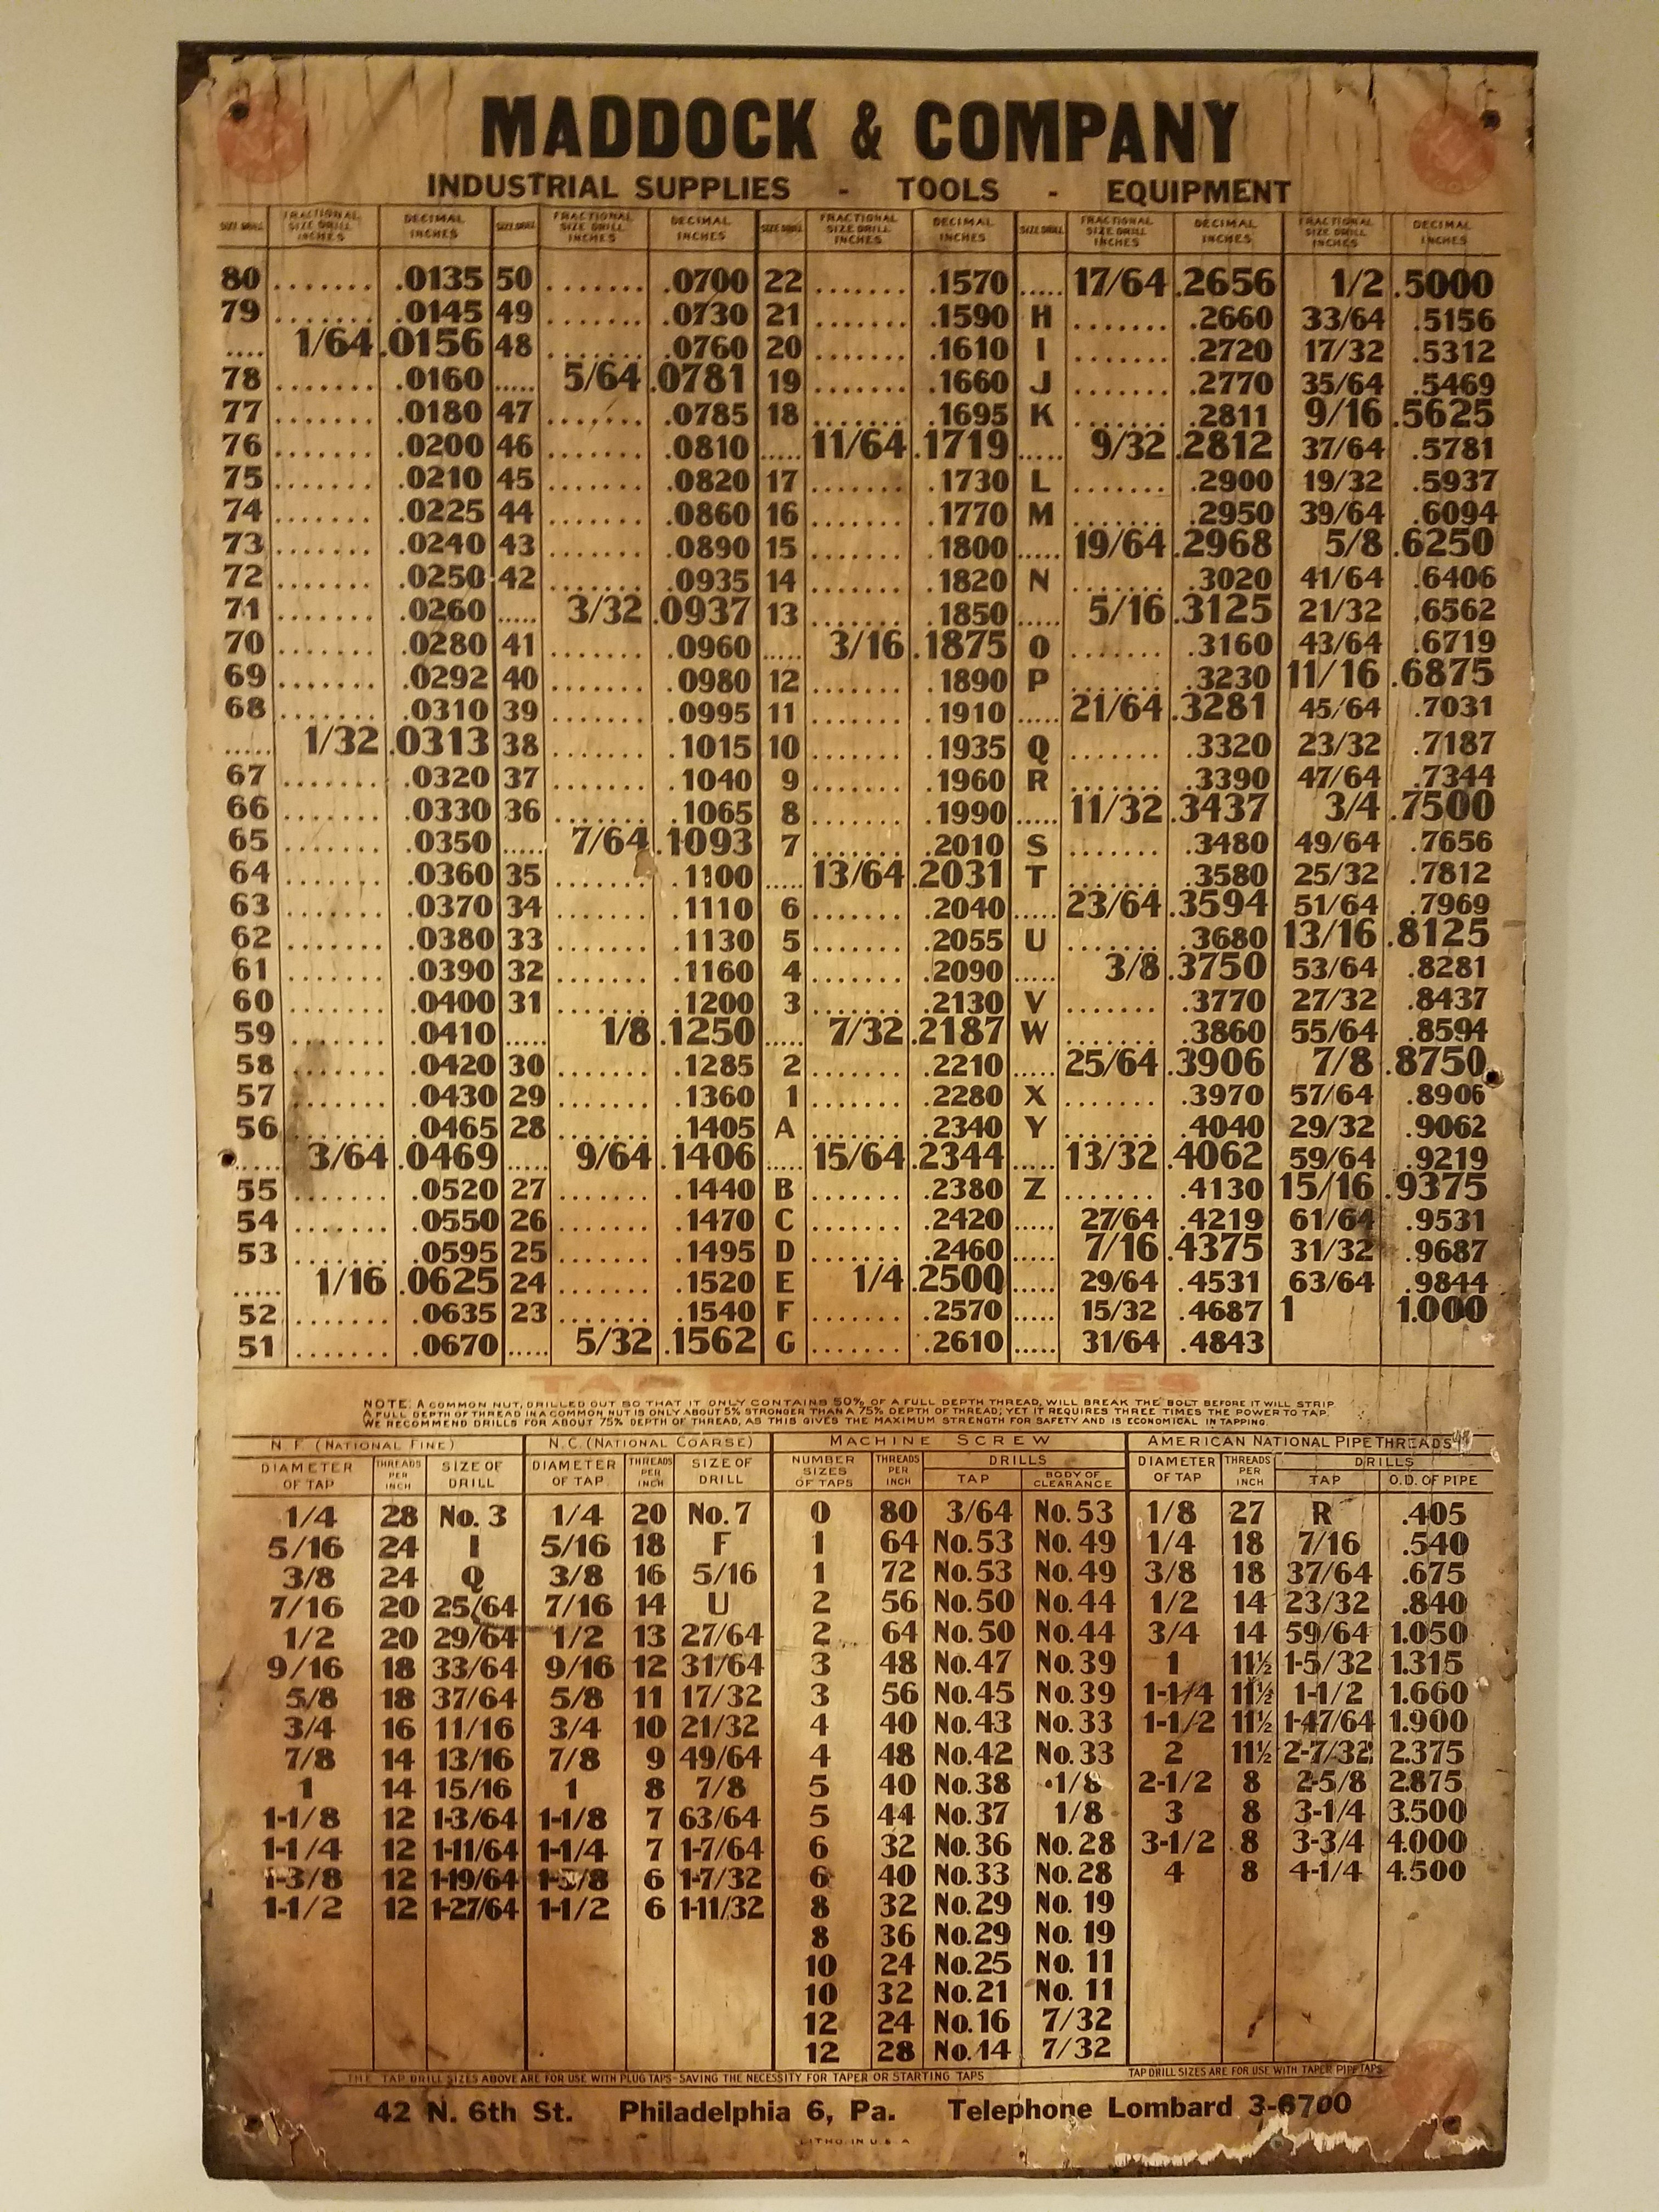 MADDOCK & COMPANY
INDUSTRIAL SUPPLIES - TOOLS - EQUIPMENT
SIZE DRILL FRACTIONAL SIZE DRILL INCHES DECIMAL INCHES SIZE DRILL FRACTIONAL SIZE DRILL INCHES DECIMAL INCHES SIZE DRILL FRACTIONAL SIZE DRILL INCHES DECIMAL INCHES SIZE DRILL FRACTIONAL SIZE DRILL INCHES DECIMAL INCHES FRACTIONAL SIZE DRILL INCHES DECIMAL INCHES
80 ....... .0135 50 ....... .0700 22 ....... .1570 ..... 17/64 .2656 1/2 .5000
79 ....... .0145 49 ....... .0730 21 ....... .1590 H ....... .2660 33/64 .5156
.... 1/64 .0156 48 ....... .0760 20 ....... .1610 I ....... .2720 17/32 .5312
78 ....... .0160 ..... 5/64 .0781 19 ....... .1660 J ....... .2770 35/64 .5469
77 ....... .0180 47 ....... .0785 18 ....... .1695 K ....... .2811 9/16 .5625
76 ....... .0200 46 ....... .0810 ..... 11/64 .1719 ..... 9/32 .2812 37/64 .5781
75 ....... .0210 45 ....... .0820 17 ....... .1730 L ....... .2900 19/32 .5937
74 ....... .0225 44 ....... .0860 16 ....... .1770 M ....... .2950 39/64 .6094
73 ....... .0240 43 ....... .0890 15 ....... .1800 ..... 19/64 .2968 5/8 .6250
72 ....... .0250 42 ....... .0935 14 ....... .1820 N ....... .3020 41/64 .6406
71 ....... .0260 ..... 3/32 .0937 13 ....... .1850 ..... 5/16 .3125 21/32 .6562
70 ....... .0280 41 ....... .0960 ..... 3/16 .1875 O ....... .3160 43/64 .6719
69 ....... .0292 40 ....... .0980 12 ....... .1890 P ....... .3230 11/16 .6875
68 ....... .0310 39 ....... .0995 11 ....... .1910 ..... 21/64 .3281 45/64 .7031
..... 1/32 .0313 38 ....... .1015 10 ....... .1935 Q ....... .3320 23/32 .7187
67 ....... .0320 37 ....... .1040 9 ....... .1960 R ....... .3390 47/64 .7344
66 ....... .0330 36 ....... .1065 8 ....... .1990 ..... 11/32 .3437 3/4 .7500
65 ....... .0350 ..... 7/64 .1093 7 ....... .2010 S ....... .3480 49/64 .7656
64 ....... .0360 35 ....... .1100 ..... 13/64 .2031 T ....... .3580 25/32 .7812
63 ....... .0370 34 ....... .1110 6 ....... .2040 ..... 23/64 .3594 51/64 .7969
62 ....... .0380 33 ....... .1130 5 ....... .2055 U ....... .3680 13/16 .8125
61 ....... .0390 32 ....... .1160 4 ....... .2090 ..... 3/8 .3750 53/64 .8281
60 ....... .0400 31 ....... .1200 3 ....... .2130 V ....... .3770 27/32 .8437
59 ....... .0410 ..... 1/8 .1250 ..... 7/32 .2187 W ....... .3860 55/64 .8594
58 ....... .0420 30 ....... .1285 2 ....... .2210 ..... 25/64 .3906 7/8 .8750
57 ....... .0430 29 ....... .1360 1 ....... .2280 X ....... .3970 57/64 .8906
56 ....... .0465 28 ....... .1405 A ....... .2340 Y ....... .4040 29/32 .9062
..... 3/64 .0469 ..... 9/64 .1406 ..... 15/64 .2344 ..... 13/32 .4062 59/64 .9219
55 ....... .0520 27 ....... .1440 B ....... .2380 Z ....... .4130 15/16 .9375
54 ....... .0550 26 ....... .1470 C ....... .2420 ..... 27/64 .4219 61/64 .9531
53 ....... .0595 25 ....... .1495 D ....... .2460 ..... 7/16 .4375 31/32 .9687
..... 1/16 .0625 24 ....... .1520 E 1/4 .2500 ..... 29/64 .4531 63/64 .9844
52 ....... .0635 23 ....... .1540 F ....... .2570 ..... 15/32 .4687 1 1.000
51 ....... .0670 ..... 5/32 .1562 G ....... .2610 ..... 31/64 .4843
TAP DRILL SIZES
NOTE: A COMMON NUT, DRILLED OUT SO THAT IT ONLY CONTAINS 50% OF A FULL DEPTH THREAD, WILL BREAK THE BOLT BEFORE IT WILL STRIP
A FULL DEPTH OF THREAD IN A COMMON NUT IS ONLY ABOUT 5% STRONGER THAN A 75% DEPTH OF THREAD; YET IT REQUIRES THREE TIMES THE POWER TO TAP.
WE RECOMMEND DRILLS FOR ABOUT 75% DEPTH OF THREAD, AS THIS GIVES THE MAXIMUM STRENGTH FOR SAFETY AND IS ECONOMICAL IN TAPPING.
N.F. (NATIONAL FINE) N.C. (NATIONAL COARSE) MACHINE SCREW AMERICAN NATIONAL PIPE THREADS
DIAMETER OF TAP THREADS PER INCH SIZE OF DRILL DIAMETER OF TAP THREADS PER INCH SIZE OF DRILL NUMBER SIZES OF TAPS THREADS PER INCH DRILLS TAP BODY OF CLEARANCE DIAMETER OF TAP THREADS PER INCH DRILLS TAP O.D. OF PIPE
1/4 28 No. 3 1/4 20 No. 7 0 80 3/64 No. 53 1/8 27 R .405
5/16 24 I 5/16 18 F 1 64 No. 53 No. 49 1/4 18 7/16 .540
3/8 24 Q 3/8 16 5/16 1 72 No. 53 No. 49 3/8 18 37/64 .675
7/16 20 25/64 7/16 14 U 2 56 No. 50 No. 44 1/2 14 23/32 .840
1/2 20 29/64 1/2 13 27/64 2 64 No. 50 No. 44 3/4 14 59/64 1.050
9/16 18 33/64 9/16 12 31/64 3 48 No. 47 No. 39 1 11½ 1-5/32 1.315
5/8 18 37/64 5/8 11 17/32 3 56 No. 45 No. 39 1-1/4 11½ 1-1/2 1.660
3/4 16 11/16 3/4 10 21/32 4 40 No. 43 No. 33 1-1/2 11½ 1-47/64 1.900
7/8 14 13/16 7/8 9 49/64 4 48 No. 42 No. 33 2 11½ 2-7/32 2.375
1 14 15/16 1 8 7/8 5 40 No. 38 1/8 2-1/2 8 2-5/8 2.875
1-1/8 12 1-3/64 1-1/8 7 63/64 5 44 No. 37 1/8 3 8 3-1/4 3.500
1-1/4 12 1-11/64 1-1/4 7 1-7/64 6 32 No. 36 No. 28 3-1/2 8 3-3/4 4.000
1-3/8 12 1-19/64 1-3/8 6 1-7/32 6 40 No. 33 No. 28 4 8 4-1/4 4.500
1-1/2 12 1-27/64 1-1/2 6 1-11/32 8 32 No. 29 No. 19
8 36 No. 29 No. 19
10 24 No. 25 No. 11
10 32 No. 21 No. 11
12 24 No. 16 7/32
12 28 No. 14 7/32
THE TAP DRILL SIZES ABOVE ARE FOR USE WITH PLUG TAPS-SAVING THE NECESSITY FOR TAPER OR STARTING TAPS TAP DRILL SIZES ARE FOR USE WITH TAPER PIPE TAPS
42 N. 6th St. Philadelphia 6, Pa. Telephone Lombard 3-6700
LITHO. IN U.S.A